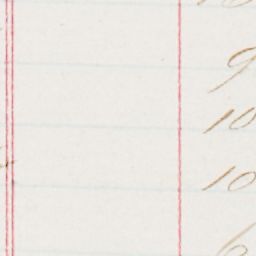 9
10
10
6